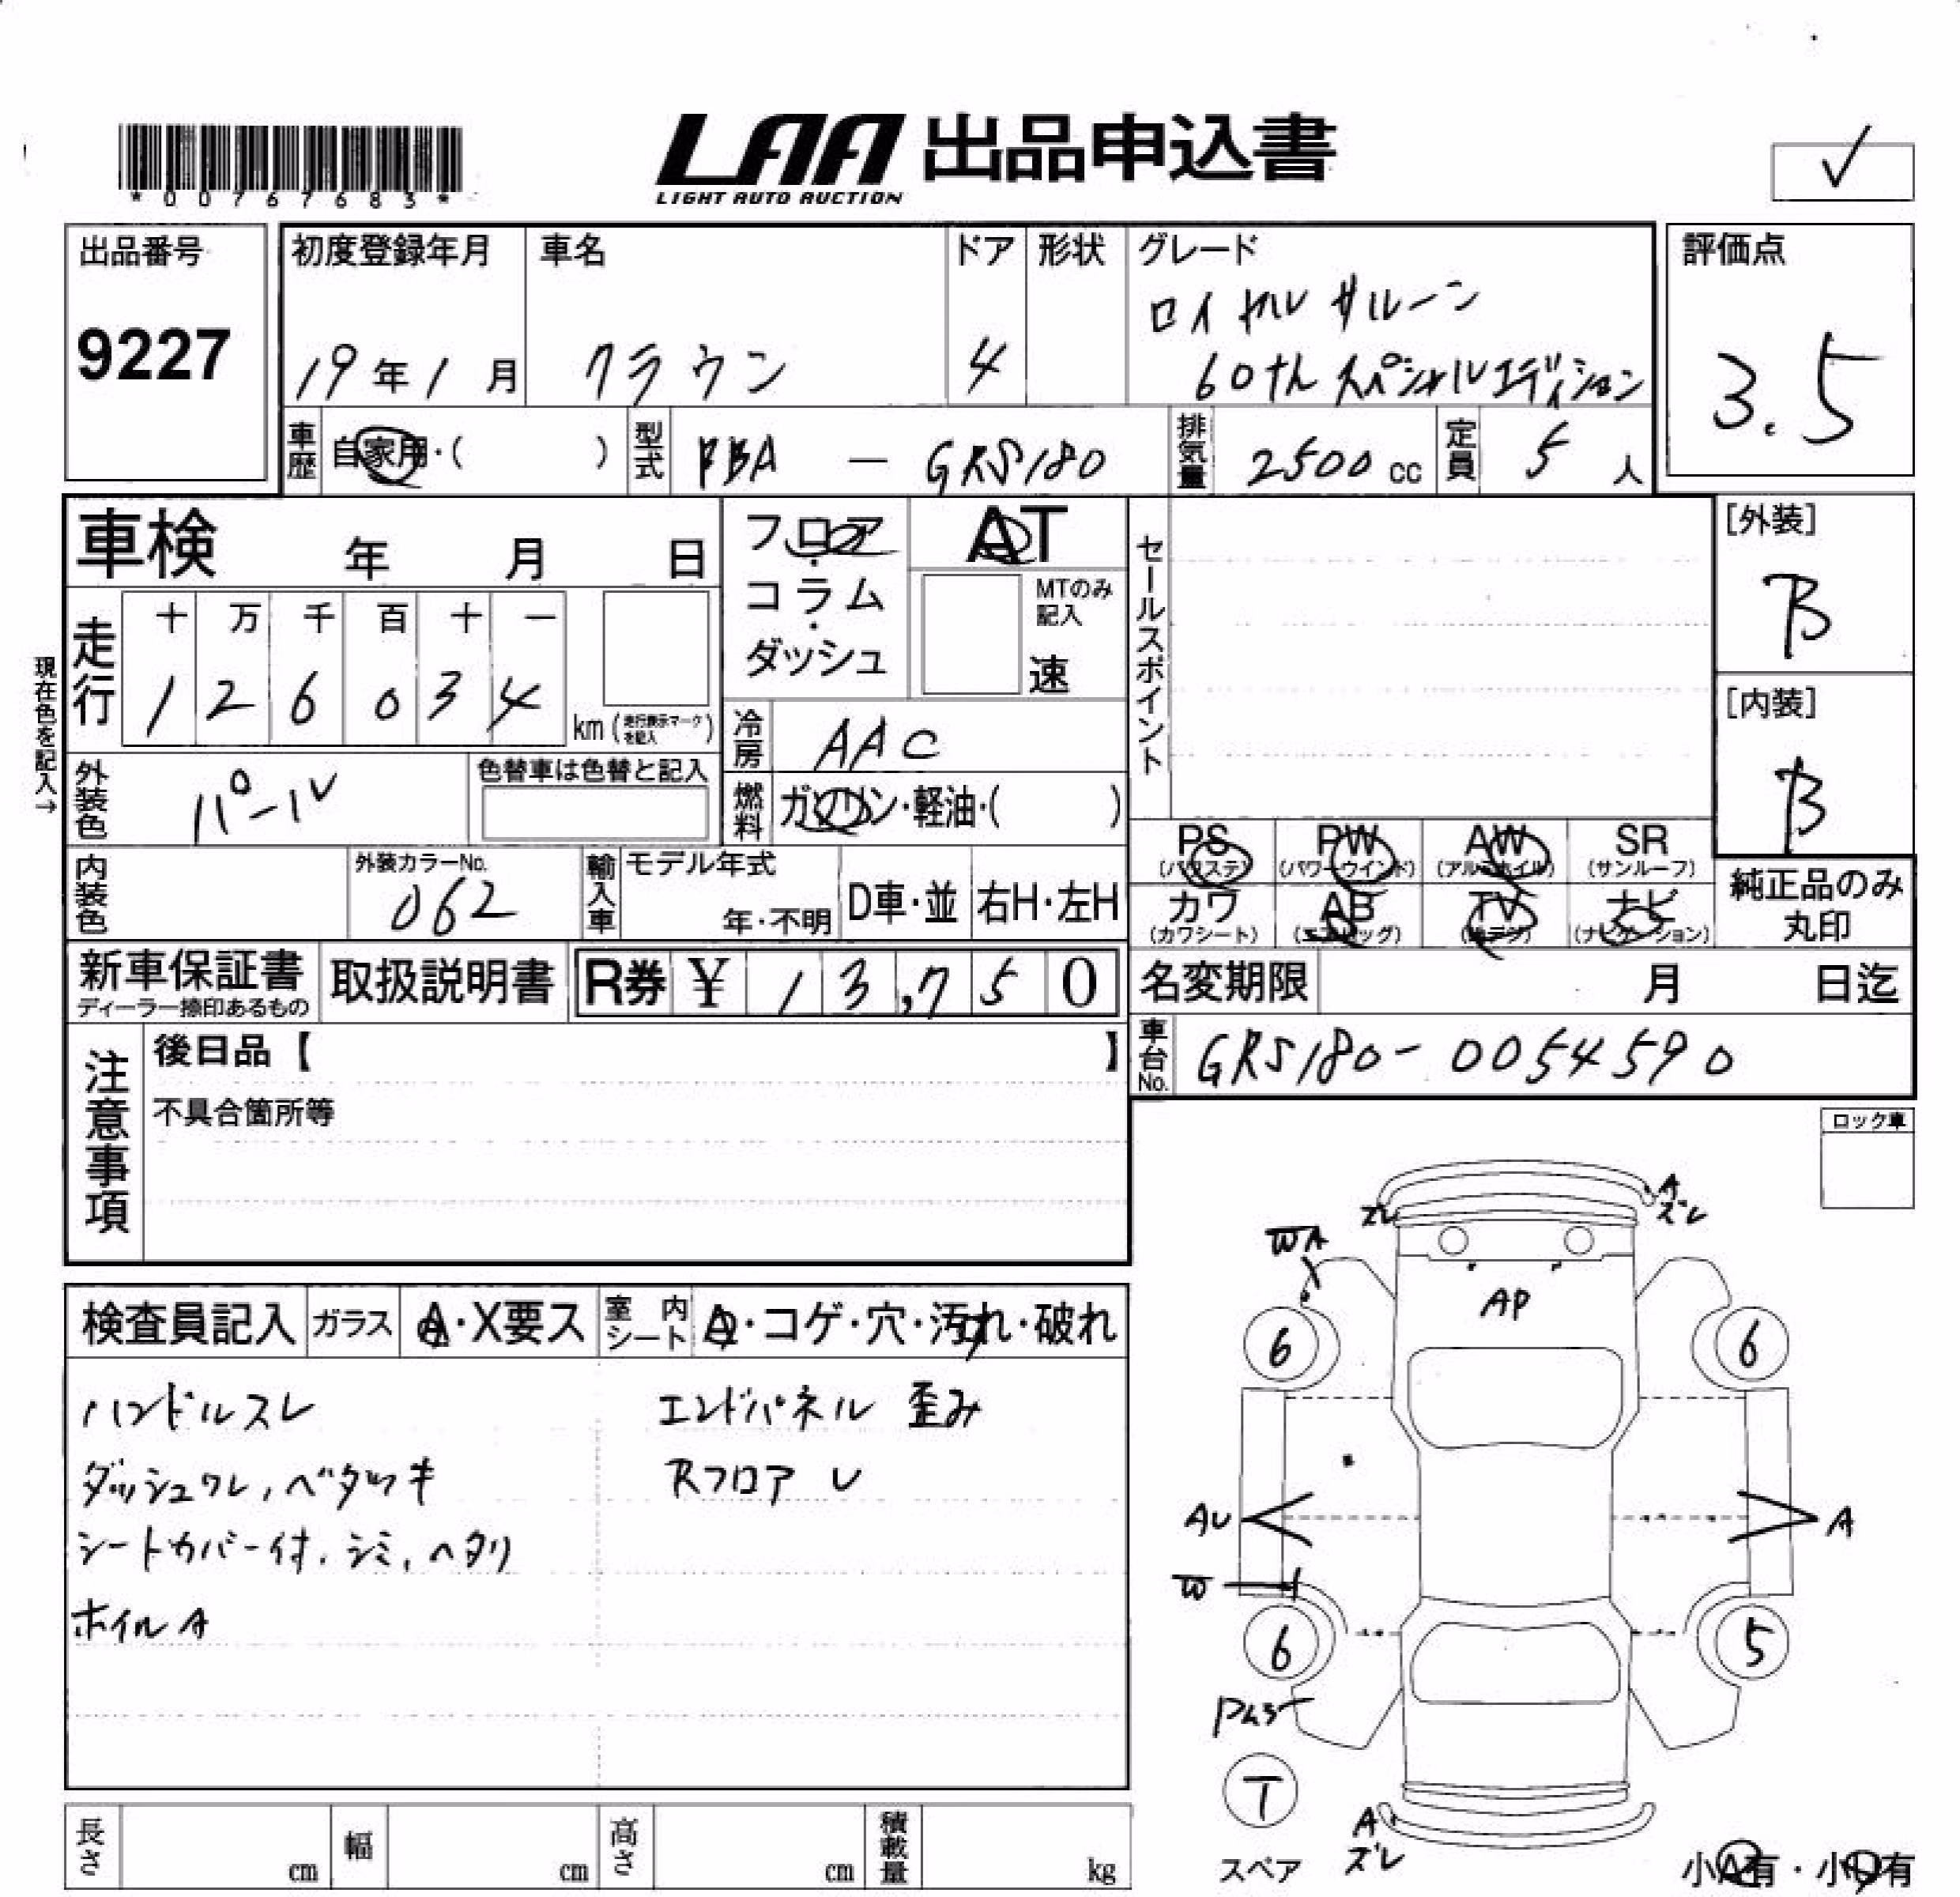 *00767683*
LAA 出品申込書
LIGHT AUTO AUCTION
✓
出品番号
9227
初度登録年月
19年1月
車名
クラウン
ドア
4
形状
グレード
ロイヤルサルーン
60thスペシャルエディション
評価点
3.5
車歴 自家用・( )
型式 DBA - GRS180
排気量 2500cc
定員 5人
車検 年 月 日
フロア・コラム・ダッシュ
AT
MTのみ記入
速
セールスポイント
[外装]
B
[内装]
B
現在色を記入→
走行 十 万 千 百 十 一
1 2 6 0 3 4
km (走行表示マークを記入)
冷房 AAC
外装色 パール
色替車は色替と記入
燃料 ガソリン・軽油・( )
PS (パワステ)
PW (パワーウインド)
AW (アルミホイル)
SR (サンルーフ)
カワ (カワシート)
AB (エアバッグ)
TV (地デジ)
ナビ (ナビゲーション)
純正品のみ丸印
内装色
外装カラーNo.
062
輸入車 モデル年式
年・不明
D車・並
右H・左H
新車保証書
ディーラー捺印あるもの
取扱説明書
R券 ¥ 13,750
名変期限 月 日迄
車台No. GRS180-0054590
注意事項
後日品【 】
不具合箇所等
ロック車
検査員記入
ガラス A・X要ス
室内シート A・コゲ・穴・汚れ・破れ
ハンドルスレ
ダッシュワレ,ベタツキ
シートカバー付.シミ,ヘタリ
ホイルA
エンドパネル 歪み
Rフロア U
ズレ
A
ズレ
WA
AP
6
6
AU
A
W
6
5
T
スペア
A
ズレ
小A有・小U有
長さ cm
幅 cm
高さ cm
積載量 kg